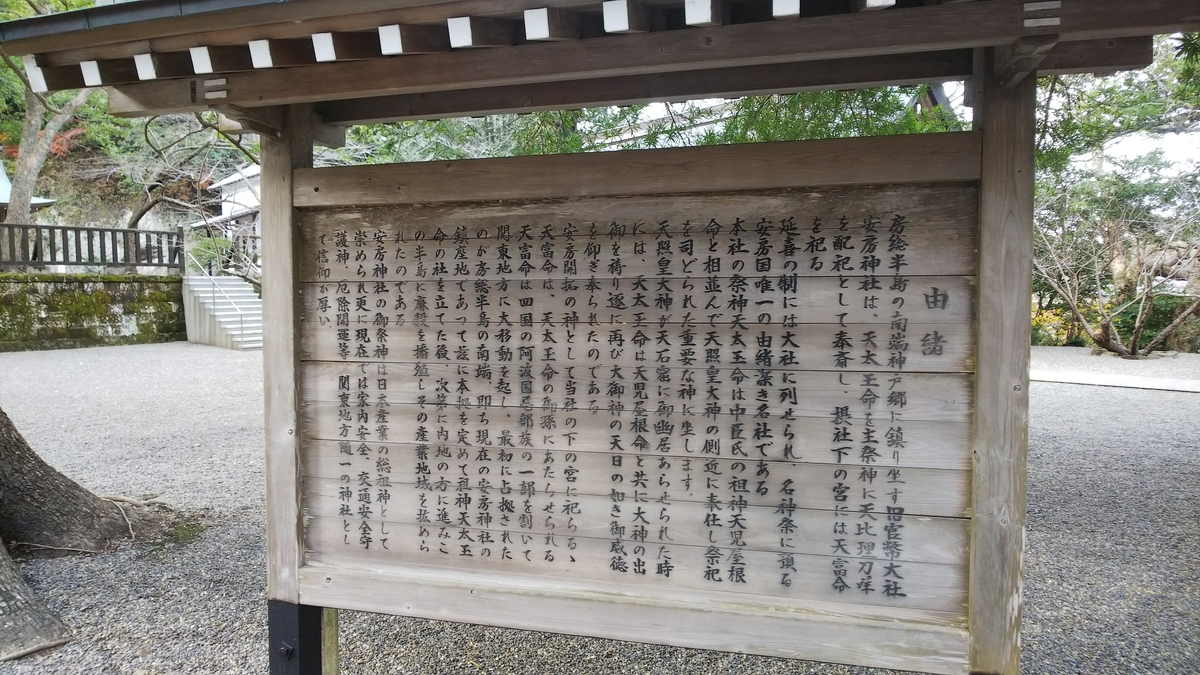 由緒
房総半島の南端神戸郷に鎮り坐す旧官幣大社
安房神社は、天太玉命を主祭神に天比理刀咩
を配祀として奉斎し、摂社下の宮には天富命
を祀る
延喜の制には大社に列せられ、名神祭に預る
安房国唯一の由緒深き名社である
本社の祭神天太玉命は中臣氏の祖神天児屋根
命と相並んで天照皇大神の側近に奉仕し祭祀
を司どられた重要な神に坐します。
天照皇大神が天石窟に御幽居あらせられた時
には、天太玉命は天児屋根命と共に大神の出
御を祷り逐に再び大御神の天日の如き御威徳
を仰ぎ奉られたのである
安房開拓の神として当社の下の宮に祀らるゝ
天富命は、天太玉命の御孫にあたらせられる
天富命は四国の阿波国忌部族の一部を割いて
関東地方に大移動を起し、最初に占拠された
のが房総半島の南端、即ち現在の安房神社の
鎮座地であって茲に本拠を定めて祖神天太玉
命の社を立てた後、次第に内地の方に進みこ
の半島に麻穀を播殖しその産業地域を拡めら
れたのである
安房神社の御祭神は日本産業の総祖神として
崇められ更に現在では家内安全、交通安全守
護神、厄除開運等、関東地方随一の神社とし
て信仰が厚い